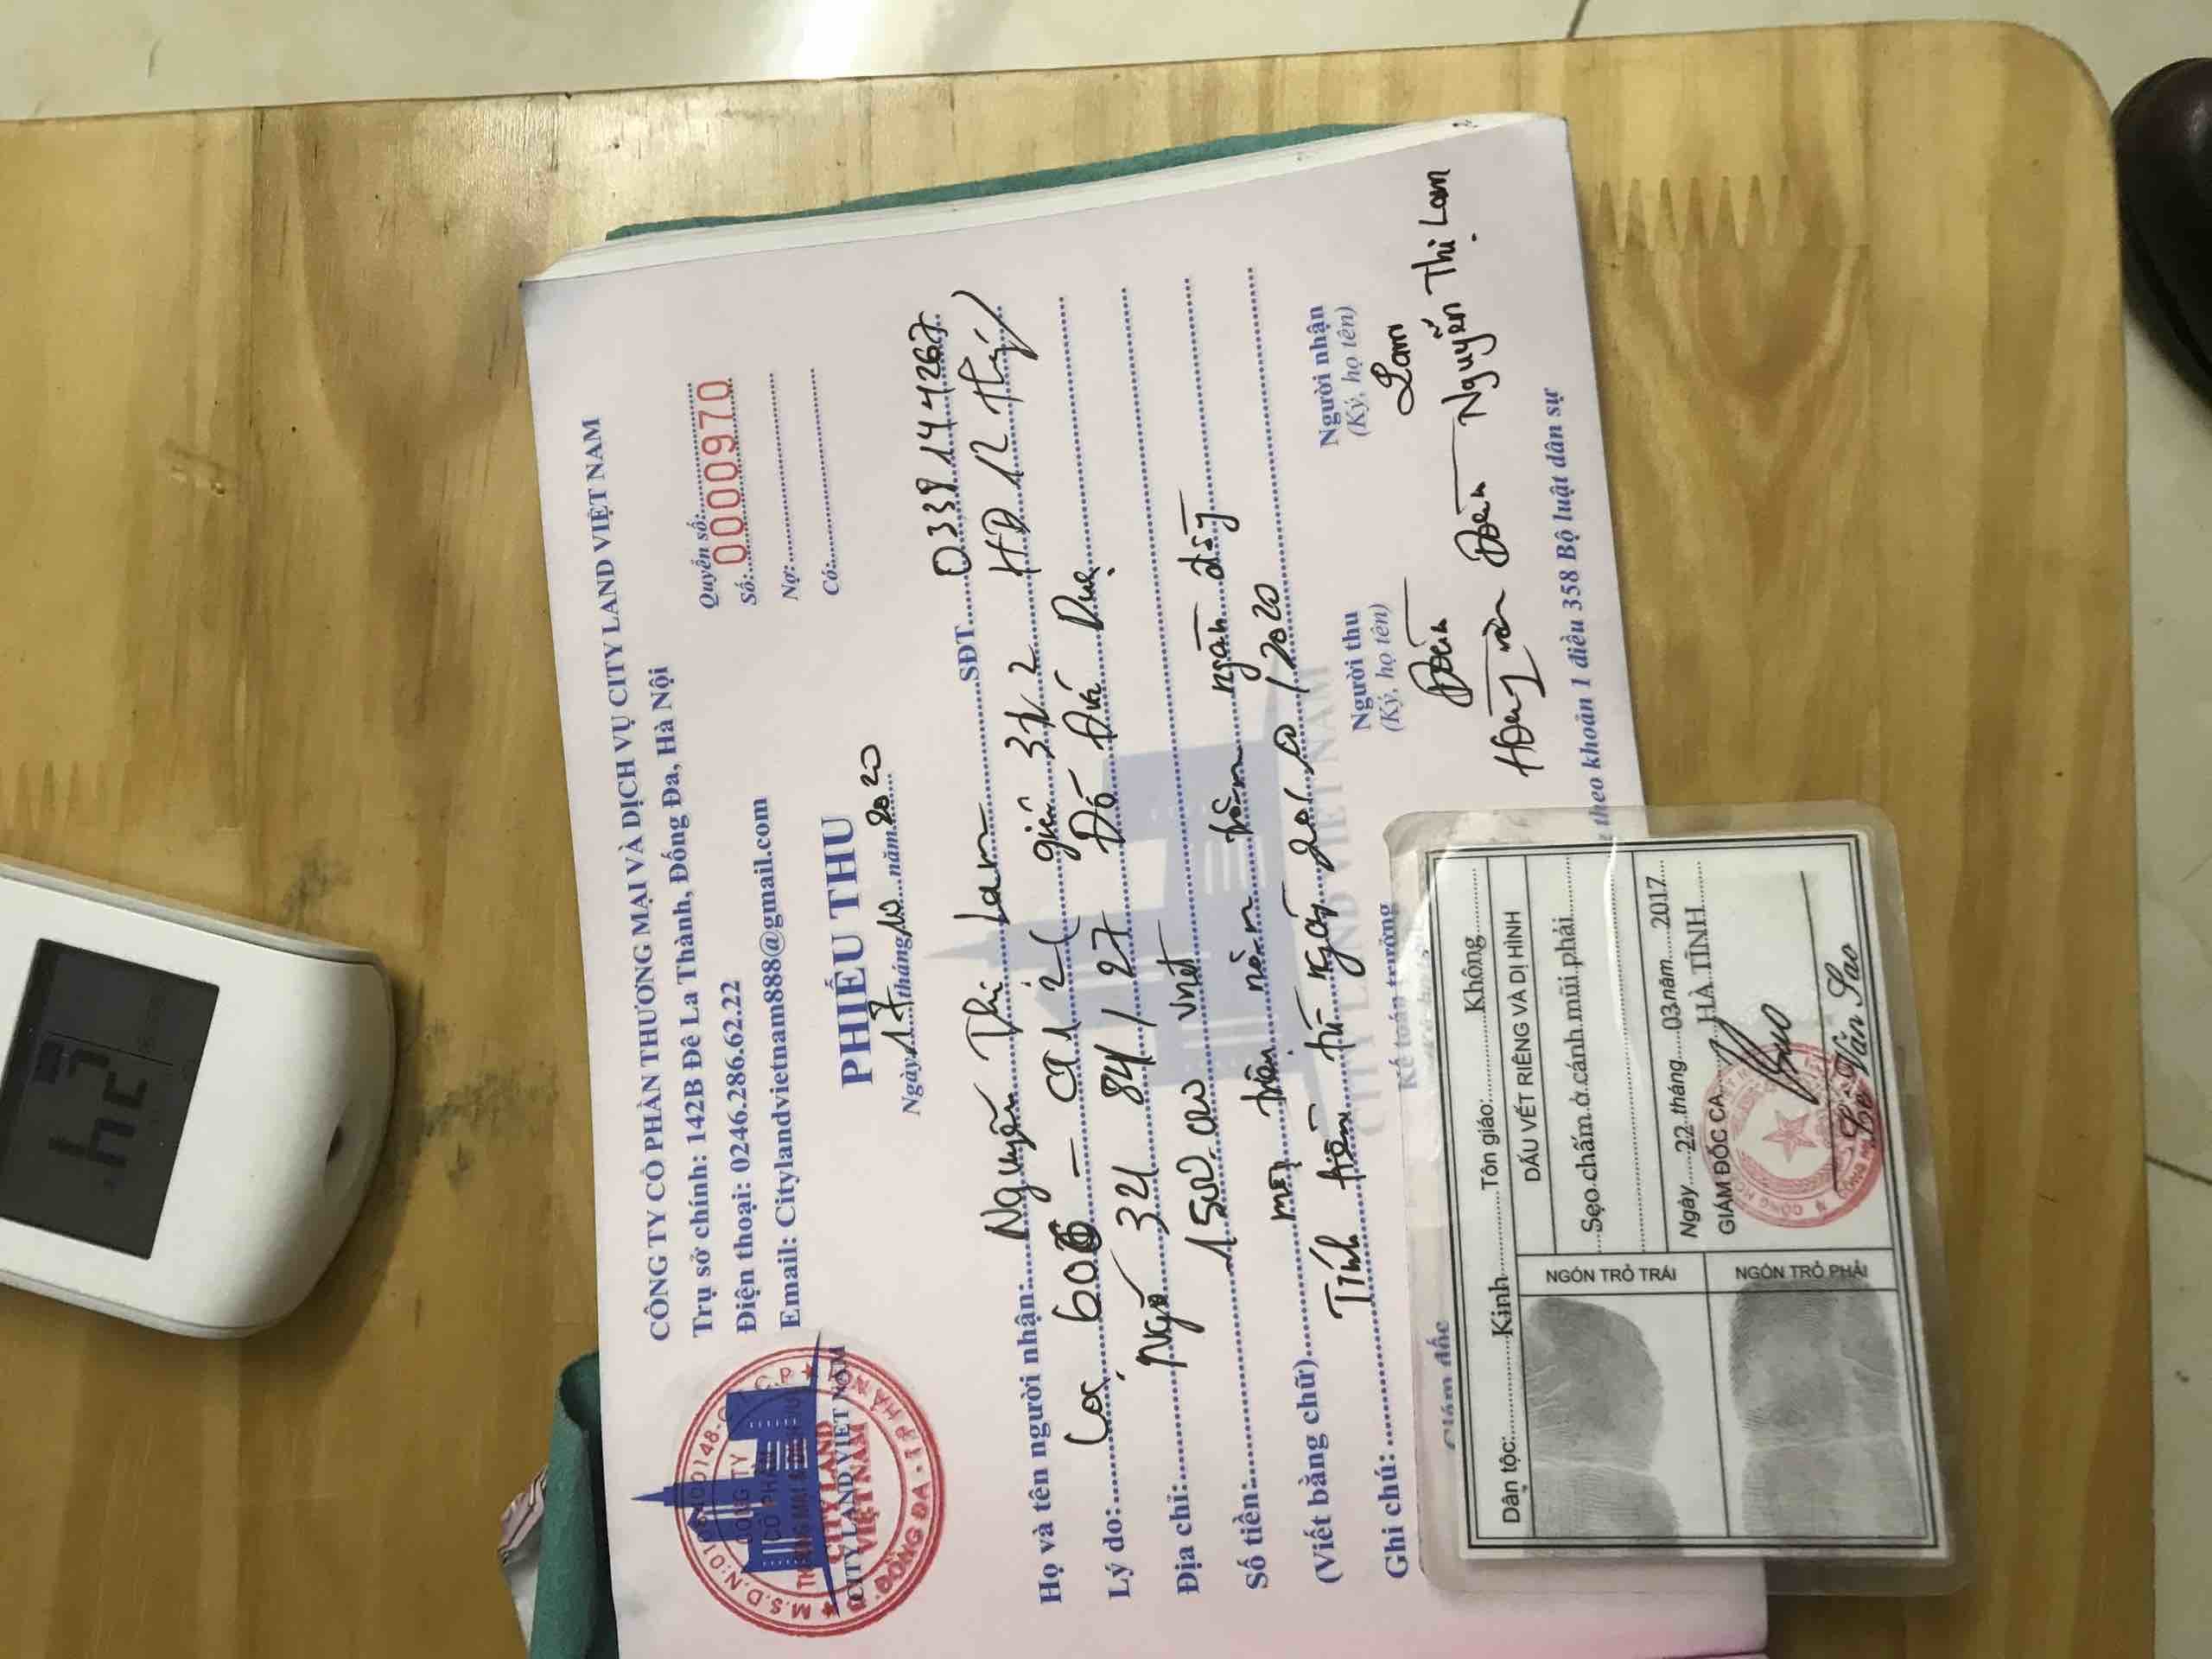 CÔNG TY CỔ PHẦN THƯƠNG MẠI VÀ DỊCH VỤ CITY LAND VIỆT NAM
Trụ sở chính: 142B Đê La Thành, Đống Đa, Hà Nội
Điện thoại: 0246.286.62.22
Email: Citylandvietnam888@gmail.com
CITY LAND VIỆT NAM
CÔNG TY
CỔ PHẦN
CITY LAND
VIỆT NAM
Quyển số:
Số: 0000970
Nợ:
Có:
PHIẾU THU
Ngày 17 tháng 10 năm 2020
Họ và tên người nhận: Nguyễn Thị Lam SĐT 0338144267
Lý do: Cọc giá 3tr2 HĐ 12 tháng
Địa chỉ: Ngõ 321 84 / 27 Đỗ Đức Dục
Số tiền: 1500.000 vnđ
(Viết bằng chữ) một triệu năm trăm ngàn đồng
Ghi chú: Tính tiền từ ngày 20/10/2020
Giám đốc
Kế toán trưởng
Người thu
(Ký, họ tên)
Người nhận
(Ký, họ tên)
Đoàn
Lam
Hoàng văn Đoàn
Nguyễn Thị Lam
theo khoản 1 điều 358 Bộ luật dân sự
CITY LAND VIET NAM
Dân tộc: Kinh Tôn giáo: Không
DẤU VẾT RIÊNG VÀ DỊ HÌNH
Sẹo chấm ở cánh mũi phải
Ngày 22 tháng 03 năm 2017
GIÁM ĐỐC CA HÀ TĨNH
NGÓN TRỎ TRÁI
NGÓN TRỎ PHẢI
Lê Văn Sao